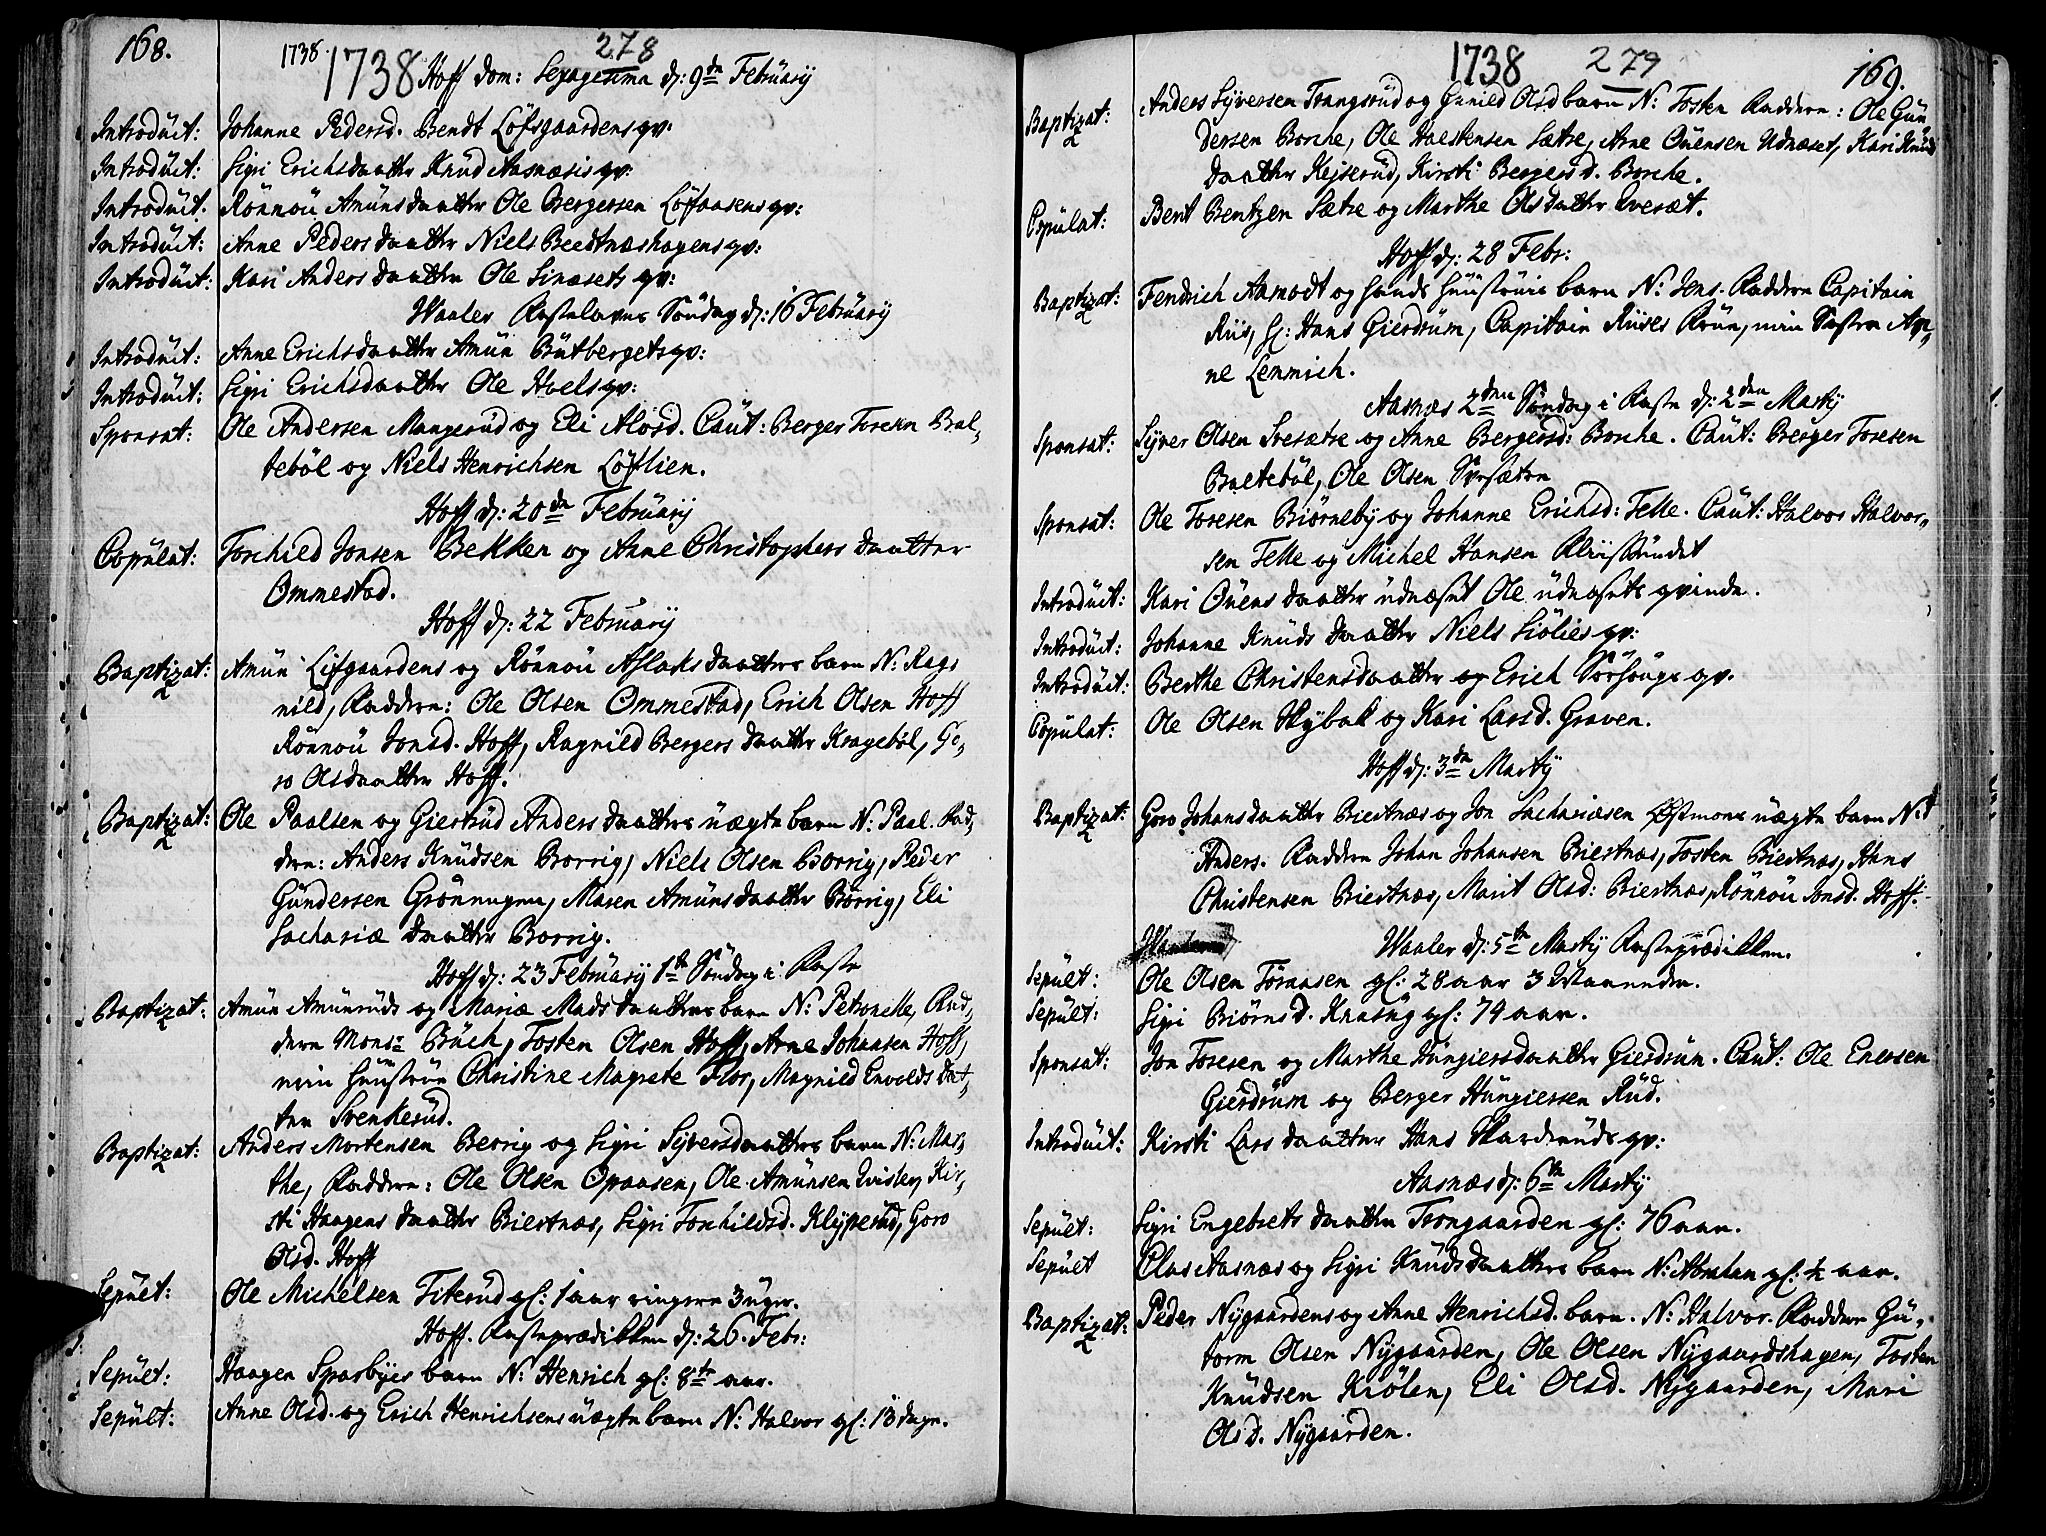 168.
1738.
1738
278
Hoff dom: Sexagesima d: 9de Februarij
Introduct: Johanne Pedersd. Bendt Löfsgaardens qv:
Introduct: Sigri Erichsdaatter Knud Aasnæsis qv:
Introduct. Rönnou Amunsdaatter Ole Bergersen Löfaasens qv:
Introduct: Anne Pedersdaatter Niels Beedtnæshagens qv:
Introduct: Kari Andersdaatter Ole Linæsets qv:
Waaler Fastelavns Söndag d: 16 Februarij
Introduct: Anne Erichsdaatter Amun Butbergets qv:
Introduct: Sigri Erichsdaatter Ole Hoels qv:
Sponsat: Ole Andersen Mangerud og Eli Alosd. Caut: Berger Toresen Bal,,
teböl og Niels Henrichsen Löflien.
Hoff d: 20de Februarij
Copulat: Torchild Jonsen Bekken og Anne Christophers daatter
Ommestad.
Hoff d: 22 Februarij
Baptizat: 2 Amun Lifgaardens og Rönnou Aslaksdaatters barn N: Rag,
nild, Faddere: Ole Olsen Ommestad, Erich Olsen Hoff
Rönnou Jonsd. Hoff, Ragnild Bergersdaatter Krageböl, Go,
ro Olsdaatter Hoff.
Baptizat: 2 Ole Paalsen og Giertrud Andersdaatters uægte barn N: Paal. Fad,
dere: Anders Knudsen Borrig, Niels Olsen Borrig, Peder
Gundersen Grönnengen, Maren Amunsdaatter Borrig, Eli
Sachariæ daatter Borrig.
Hoff d: 23 Februarij 1te Söndag i Faste
Baptizat: Amun Amunruds og Mariæ Madsdaatters barn N: Petronelle, Fad,
dere Monsr Buch, Tosten Olsen Hoff, Arne Johansen Hoff,
min hustrue Christine Magrete Flor, Magnild Envolds dat,
ter Svenkerud.
Baptizat: 2 Anders Mortensen Berrig og Sigri Syversdaatters barn N: Mar,
the, Faddere: Ole Olsen Opaasen, Ole Amunsen Qvisler, Kir,
sti Haagens daatter Biertnæs, Sigri Torchildsd. Klyperud, Goro
Olsd. Hoff
Sepult: Ole Michelsen Titerud gl: 1 aar ringere 3 uger.
Hoff. Fasteprædikken d: 26. Febr:
Sepult: Haagen Sparbyes barn N: Henrich gl: 8te aar.
Sepult: Anne Olsd. og Erich Henrichsens uægte barn N: Halvor gl: 13 dage.
1738
279
169.
Baptizat: 2 Anders Syversen Trangsrud og Gunild Olsd barn N: Tosten Faddere: Ole Gun
dersen Borche, Ole Halstensen Sætre, Arne Ouensen Udnæset, Kari Knuds
daatter Kejserud, Kirsti Bergersd. Borche.
Copulat: Bent Bentzen Sætre og Marthe Olsdatter Qveset.
Hoff d: 28 Febr:
Baptizat: 2 Fendrich Aamodt og hands hustrues barn N: Jens. Faddere Capitain
Riis, Hr: Hans Gierdrum, Capitain Riises Frue, min Søstre An,,
ne Lemmich.
Aasnæs 2den Söndag i Faste d: 2den Martij
Sponsat: Syver Olsen Svesætre og Anne Bergersd: Borche. Caut: Berger Toresen
Balteböl, Ole Olsen Svesætre
Sponsat: Ole Toresen Biörneby og Johanne Erichsd: Felle. Caut: Halvor Halvor,,
sen Felle og Michel Hansen
Introduct: Kari Ouens daatter udnæset Ole udnæsets qvinde.
Introduct: Johanne Knudsdaatter Niels Siölies qv:
Introduct: Berthe Christensdaatter og Erich Sörhougs qv.
Copulat: Ole Olsen Skybak og Kari Larsd. Graven.
Hoff d: 3de Martij
Baptizat: 2 Goro Johansdaatter Biertnæs og Jon Sachariæsen Østmoens uægte barn N:
Anders. Faddere Johan Johansen Biertnæs, Tosten Biertnæs, Hans
Christensen Biertnæs, Marit Olsd: Biertnæs, Rönnou Jonsd. Hoff.
Waaler d: 5te Martij Fasteprædikken.
Sepult: Ole Olsen Töraasen gl: 28 aar 3 Maaneder.
Sepult: Sigri Biörnsd. Knasug gl: 74 aar.
Sponsat: Jon Toresen og Marthe Hungiersdaatter Gierdrum. Caut: Ole Enersen
Gierdrum og Berger Hungiersen Rud.
Introduct: Kirsti Lars daatter Hans Skarderuds qv:
Aasnæs d: 6te Martij
Sepult: Sigri Engebretsdaatter Trongaarden gl: 76 aar.
Sepult Clas Aasnæs og Sigri Knudsdaatters barn N: Abraham gl: ½ aar.
Baptizat: 2 Peder Nygaardens og Anne Henrichsd. barn. N: Halvor. Faddere Gu,,
torm Olsen Nygaarden, Ole Olsen Nygaardshagen, Tosten
Knudsen Kiölen, Eli Olsd. Nygaarden, Mari
Olsd. Nygaarden.